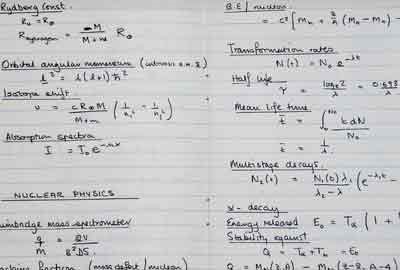 Rydberg Const.
R₀ = R∞
R_hydrogen = M / (M + m) R∞
Orbital angular momentum (intrinsic a.m. s)
l² = l(l+1) ħ²
Isotope shift.
ν = cR∞M / (M+m) (1/n₁² - 1/n₂²)
Absorption spectra
I = I₀e
NUCLEAR PHYSICS
mass spectrometer
q/m = 2V / B²
fraction (mass defect / nucleon)
B.E / nucleon
= c² [Mn + Z/A (MH - Mn) -
Transformation rates
N(t) = N₀e^-λt
Half life
τ = loge2 / λ = 0.693
Mean life time
t̄ = ∫ t dN / N₀
t̄ = 1/λ
Multistage decays.
N₂(t) = N₁(0)λ₁ / (λ₂ - λ₁) (e^-λ₁t -
α - decay
Energy released E₀ = Tα (1 +
Stability against
Q = Tα + Tb = E₀